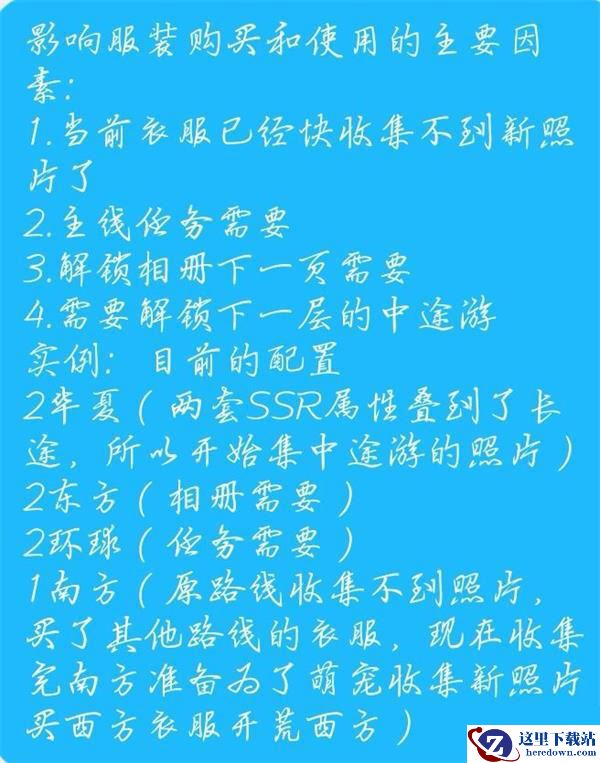 影响服装购买和使用的主要因
素：
1.当前衣服已经快收集不到新照
片了
2.主线任务需要
3.解锁相册下一页需要
4.需要解锁下一层的中途游
实例：目前的配置
2华夏（两套SSR属性叠到了长
途，所以开始集中途游的照片）
2东方（相册需要）
2环球（任务需要）
1南方（原路线收集不到照片，
买了其他路线的衣服，现在收集
完南方准备为了萌宠收集新照片
买西方衣服开荒西方）
Z
这里下载站
heredown.com